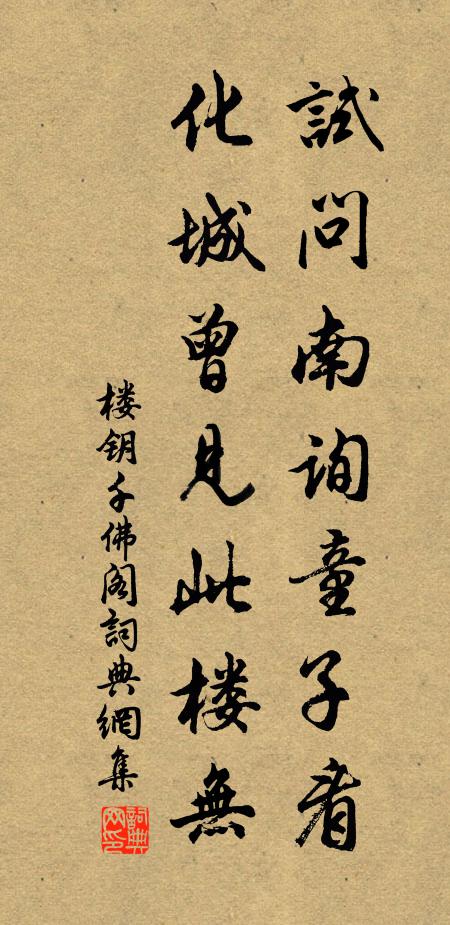 試問南詢童子看
化城曾見此楼無
楼钥千佛阁詞典網集
詞典网印